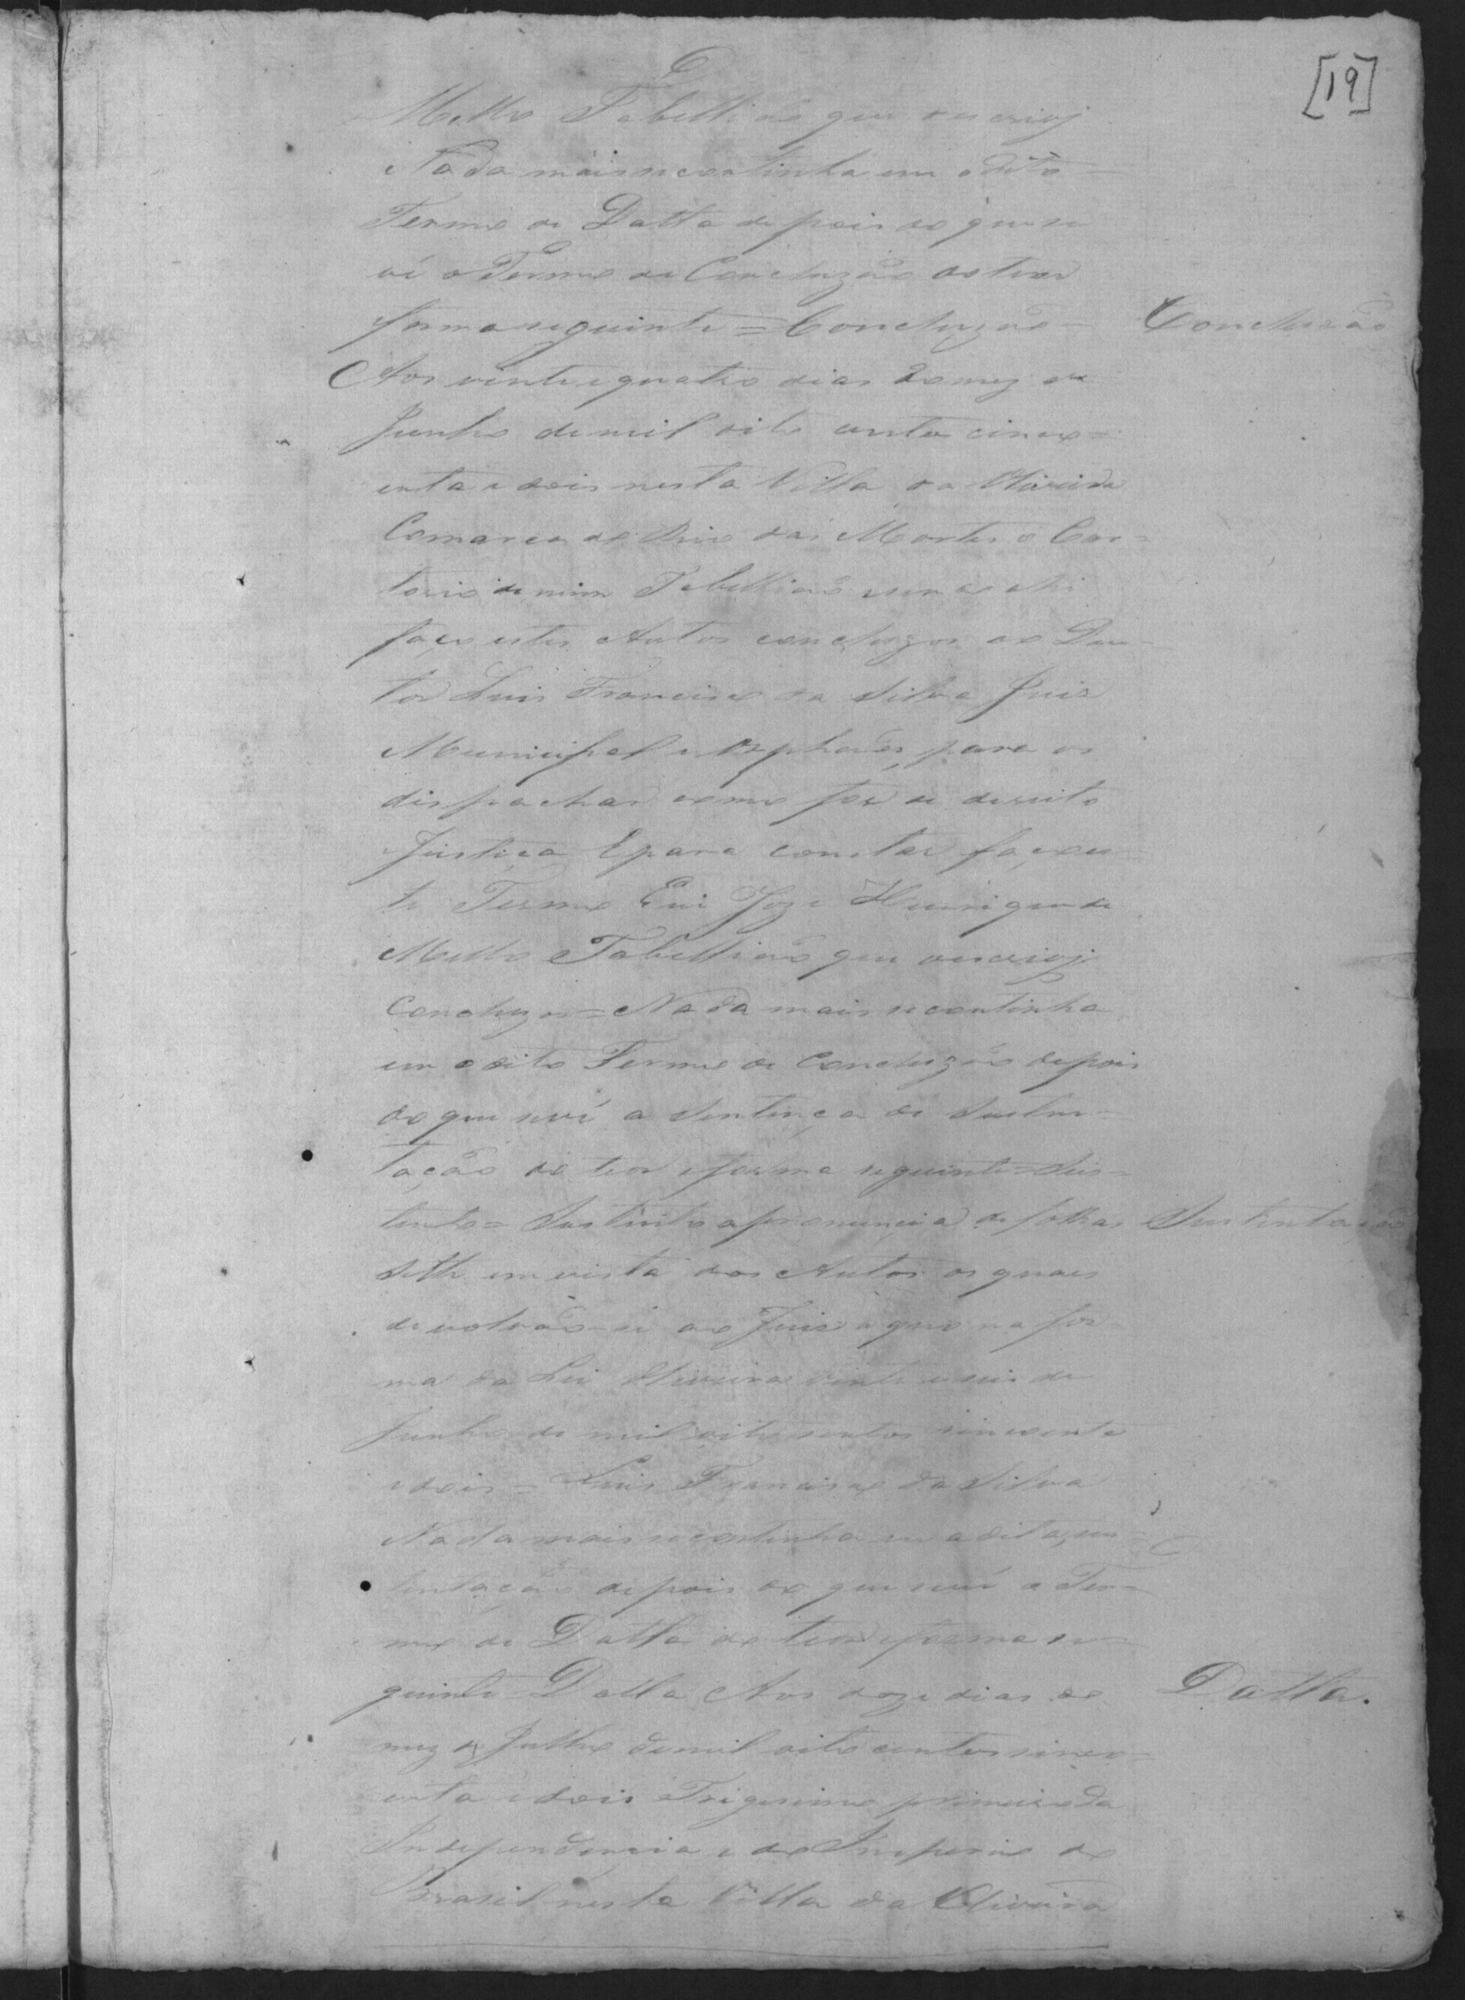 [19]
Mello Tabellião que escrivj
Nada mais se continha em o dito
Termo de Datta depois do que se
vê o Termo de Concluzão do teor
forma seguinte = Concluzão =
Concluzão
Aos vinte e quatro dias do mez de
Junho de mil oito centos cinco=
enta e dois nesta Villa da Oliveira
Comarca do Rio das Mortes e Car=
torio de mim Tabellião e sendo ahi
faço estes Autos concluzos ao Dou=
tor Luis Francisco da Silva Juis
Municipal e Orphaõs, para os
dispachar como for de direito
Justiça E para constar faço es=
te Termo Eu Joze Henrique de
Mello Tabellião que escrivj
Concluzos = Nada mais se continha
em o dito Termo de Concluzão depois
do que se vê a Sentença de Susten=
tação do teor e forma seguinte = Sus=
tento = Sustento a pronuncia de folhas
Sustentação
sette em vista dos Autos os quaes
devolvão-se ao Juizo a quo na for=
ma da Lei Oliveira vinte e seis de
Junho de mil oito centos sincoenta
e dois = Luis Francisco da Silva
Nada mais se continha em a dita sus=
tentação depois do que se vê o Ter=
mo de Datta do teor e forma se=
guinte Datta Aos doze dias do
Datta.
mez de Julho de mil oito centos sinco=
enta e dois Trigesimo primeiro da
Independencia e do Imperio do
Brasil nesta Villa da Oliveira